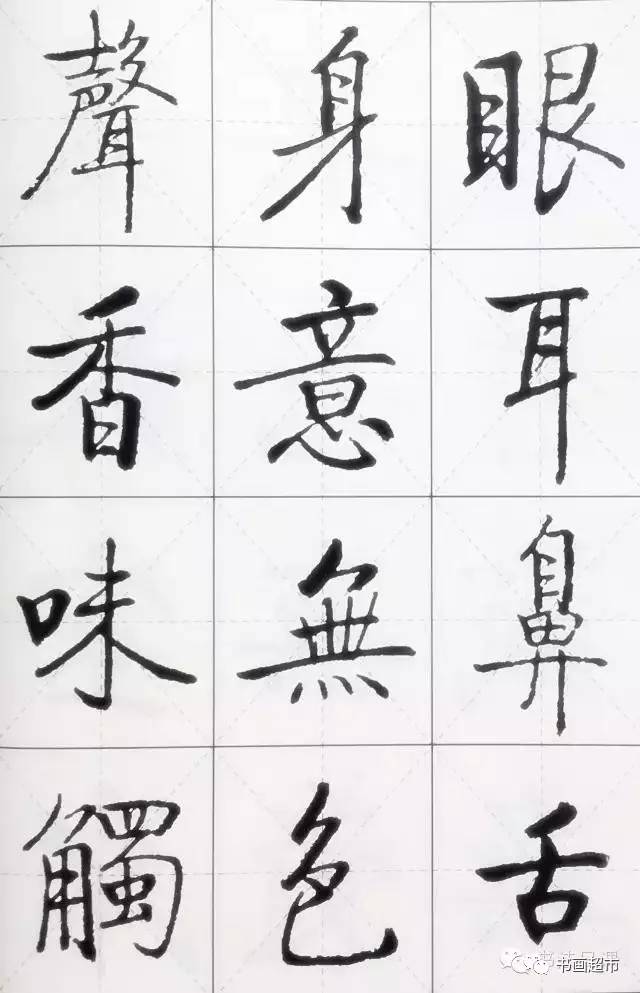 眼耳鼻舌
身意無色
聲香味觸
书画超市